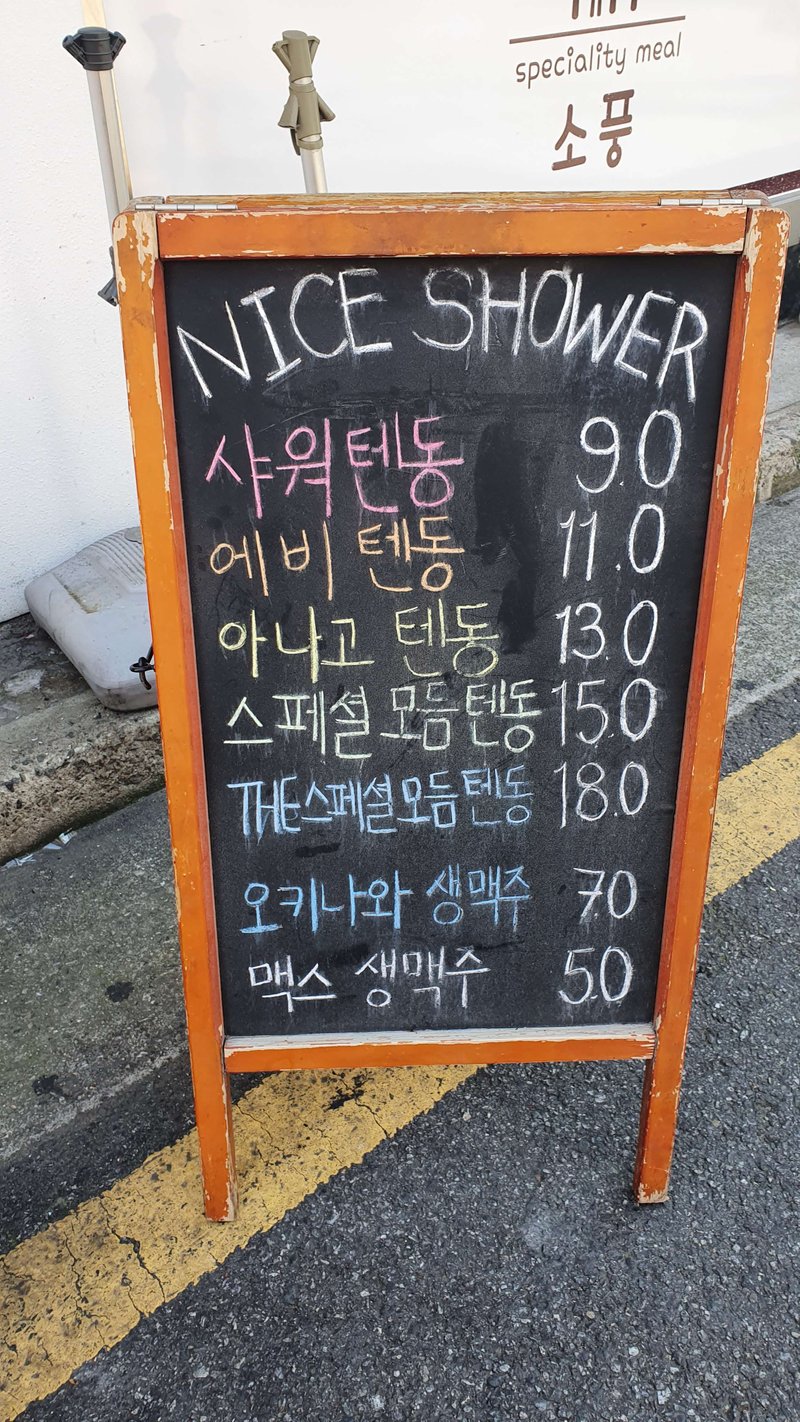 speciality meal
소풍
NICE SHOWER
샤워텐동 9.0
에비 텐동 11.0
아나고 텐동 13.0
스페셜 모듬텐동 15.0
THE스페셜모듬텐동 18.0
오키나와 생맥주 7.0
맥스 생맥주 5.0